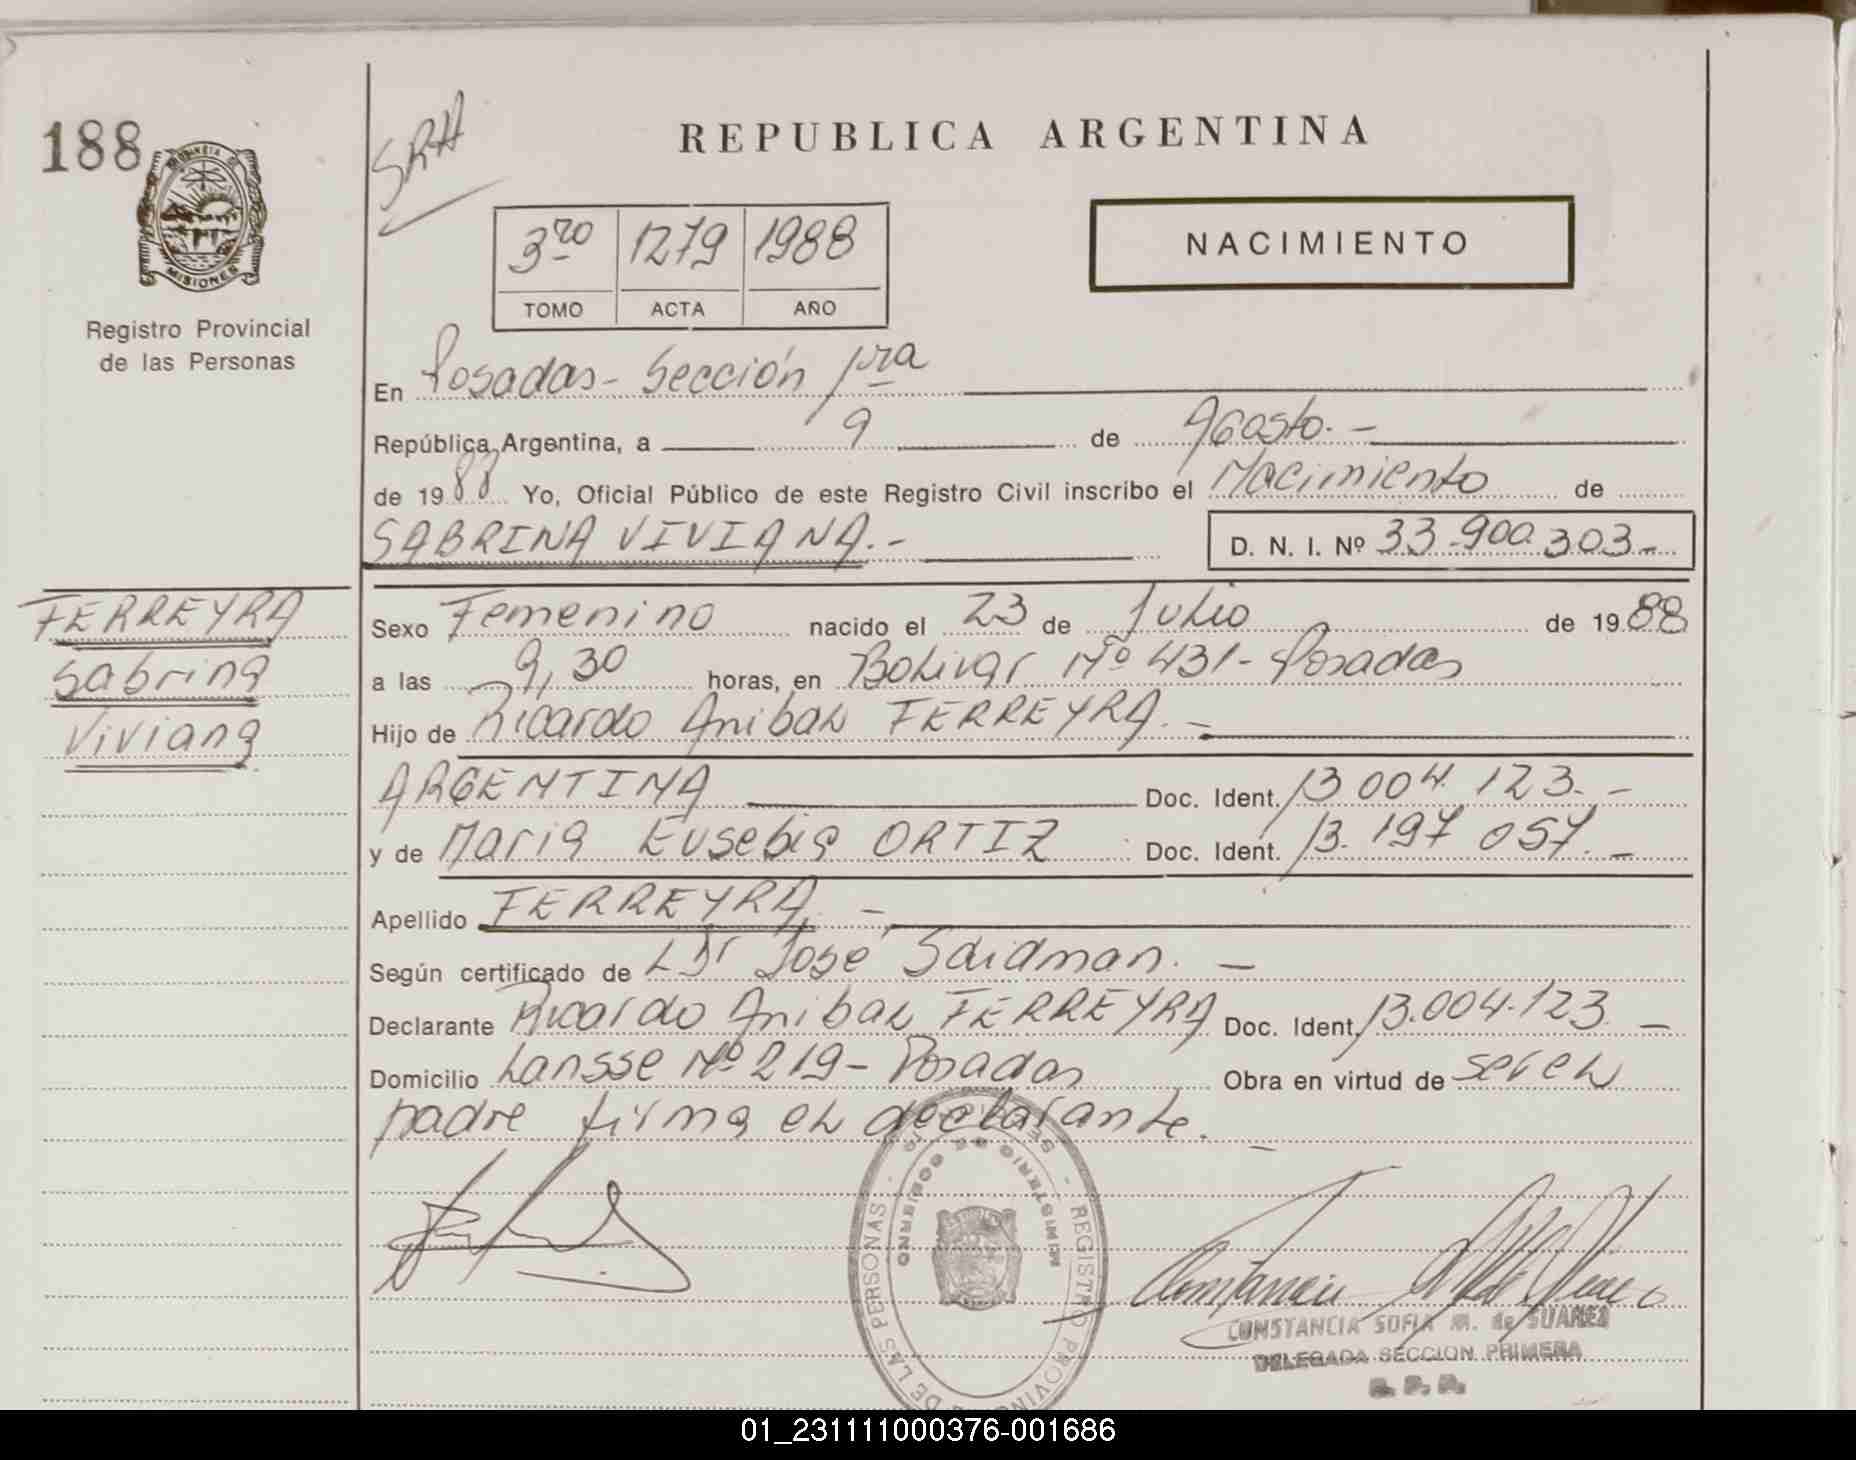 188
PROVINCIA DE
MISIONES
Registro Provincial
de las Personas
SRH
REPUBLICA ARGENTINA
3ro 1279 1988
TOMO ACTA AÑO
NACIMIENTO
En Posadas - Sección 1ra
República Argentina, a 9 de Agosto. -
de 1988 Yo, Oficial Público de este Registro Civil inscribo el Nacimiento de
SABRINA VIVIANA. -
D. N. I. Nº 33.900.303 -
FERREYRA
Sabrina
Viviana
Sexo Femenino nacido el 23 de Julio de 1988
a las 9,30 horas, en Bolivar Nº 431 - Posadas
Hijo de Ricardo Anibal FERREYRA. -
ARGENTINA Doc. Ident. 13.004.123. -
y de Maria Eusebia ORTIZ Doc. Ident. 13.197.057. -
Apellido FERREYRA. -
Según certificado de Dr José Saidman. -
Declarante Ricardo Anibal FERREYRA Doc. Ident. 13.004.123 -
Domicilio Lansse Nº 219 - Posadas Obra en virtud de ser el
padre firma el declarante. -
MINISTERIO DE GOBIERNO
REGISTRO PROVINC DE LAS PERSONAS
CONSTANCIA SOFIA M. de SUAREZ
DELEGADA SECCION PRIMERA
R. P. P.
01_231111000376-001686